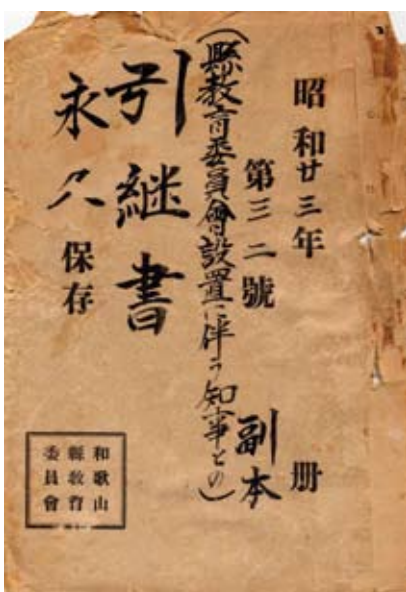 昭和廿三年
冊
第三二號
副本
(縣教育委員會設置に伴う知事との)
引継書
永久保存
和歌山
縣教育
委員會